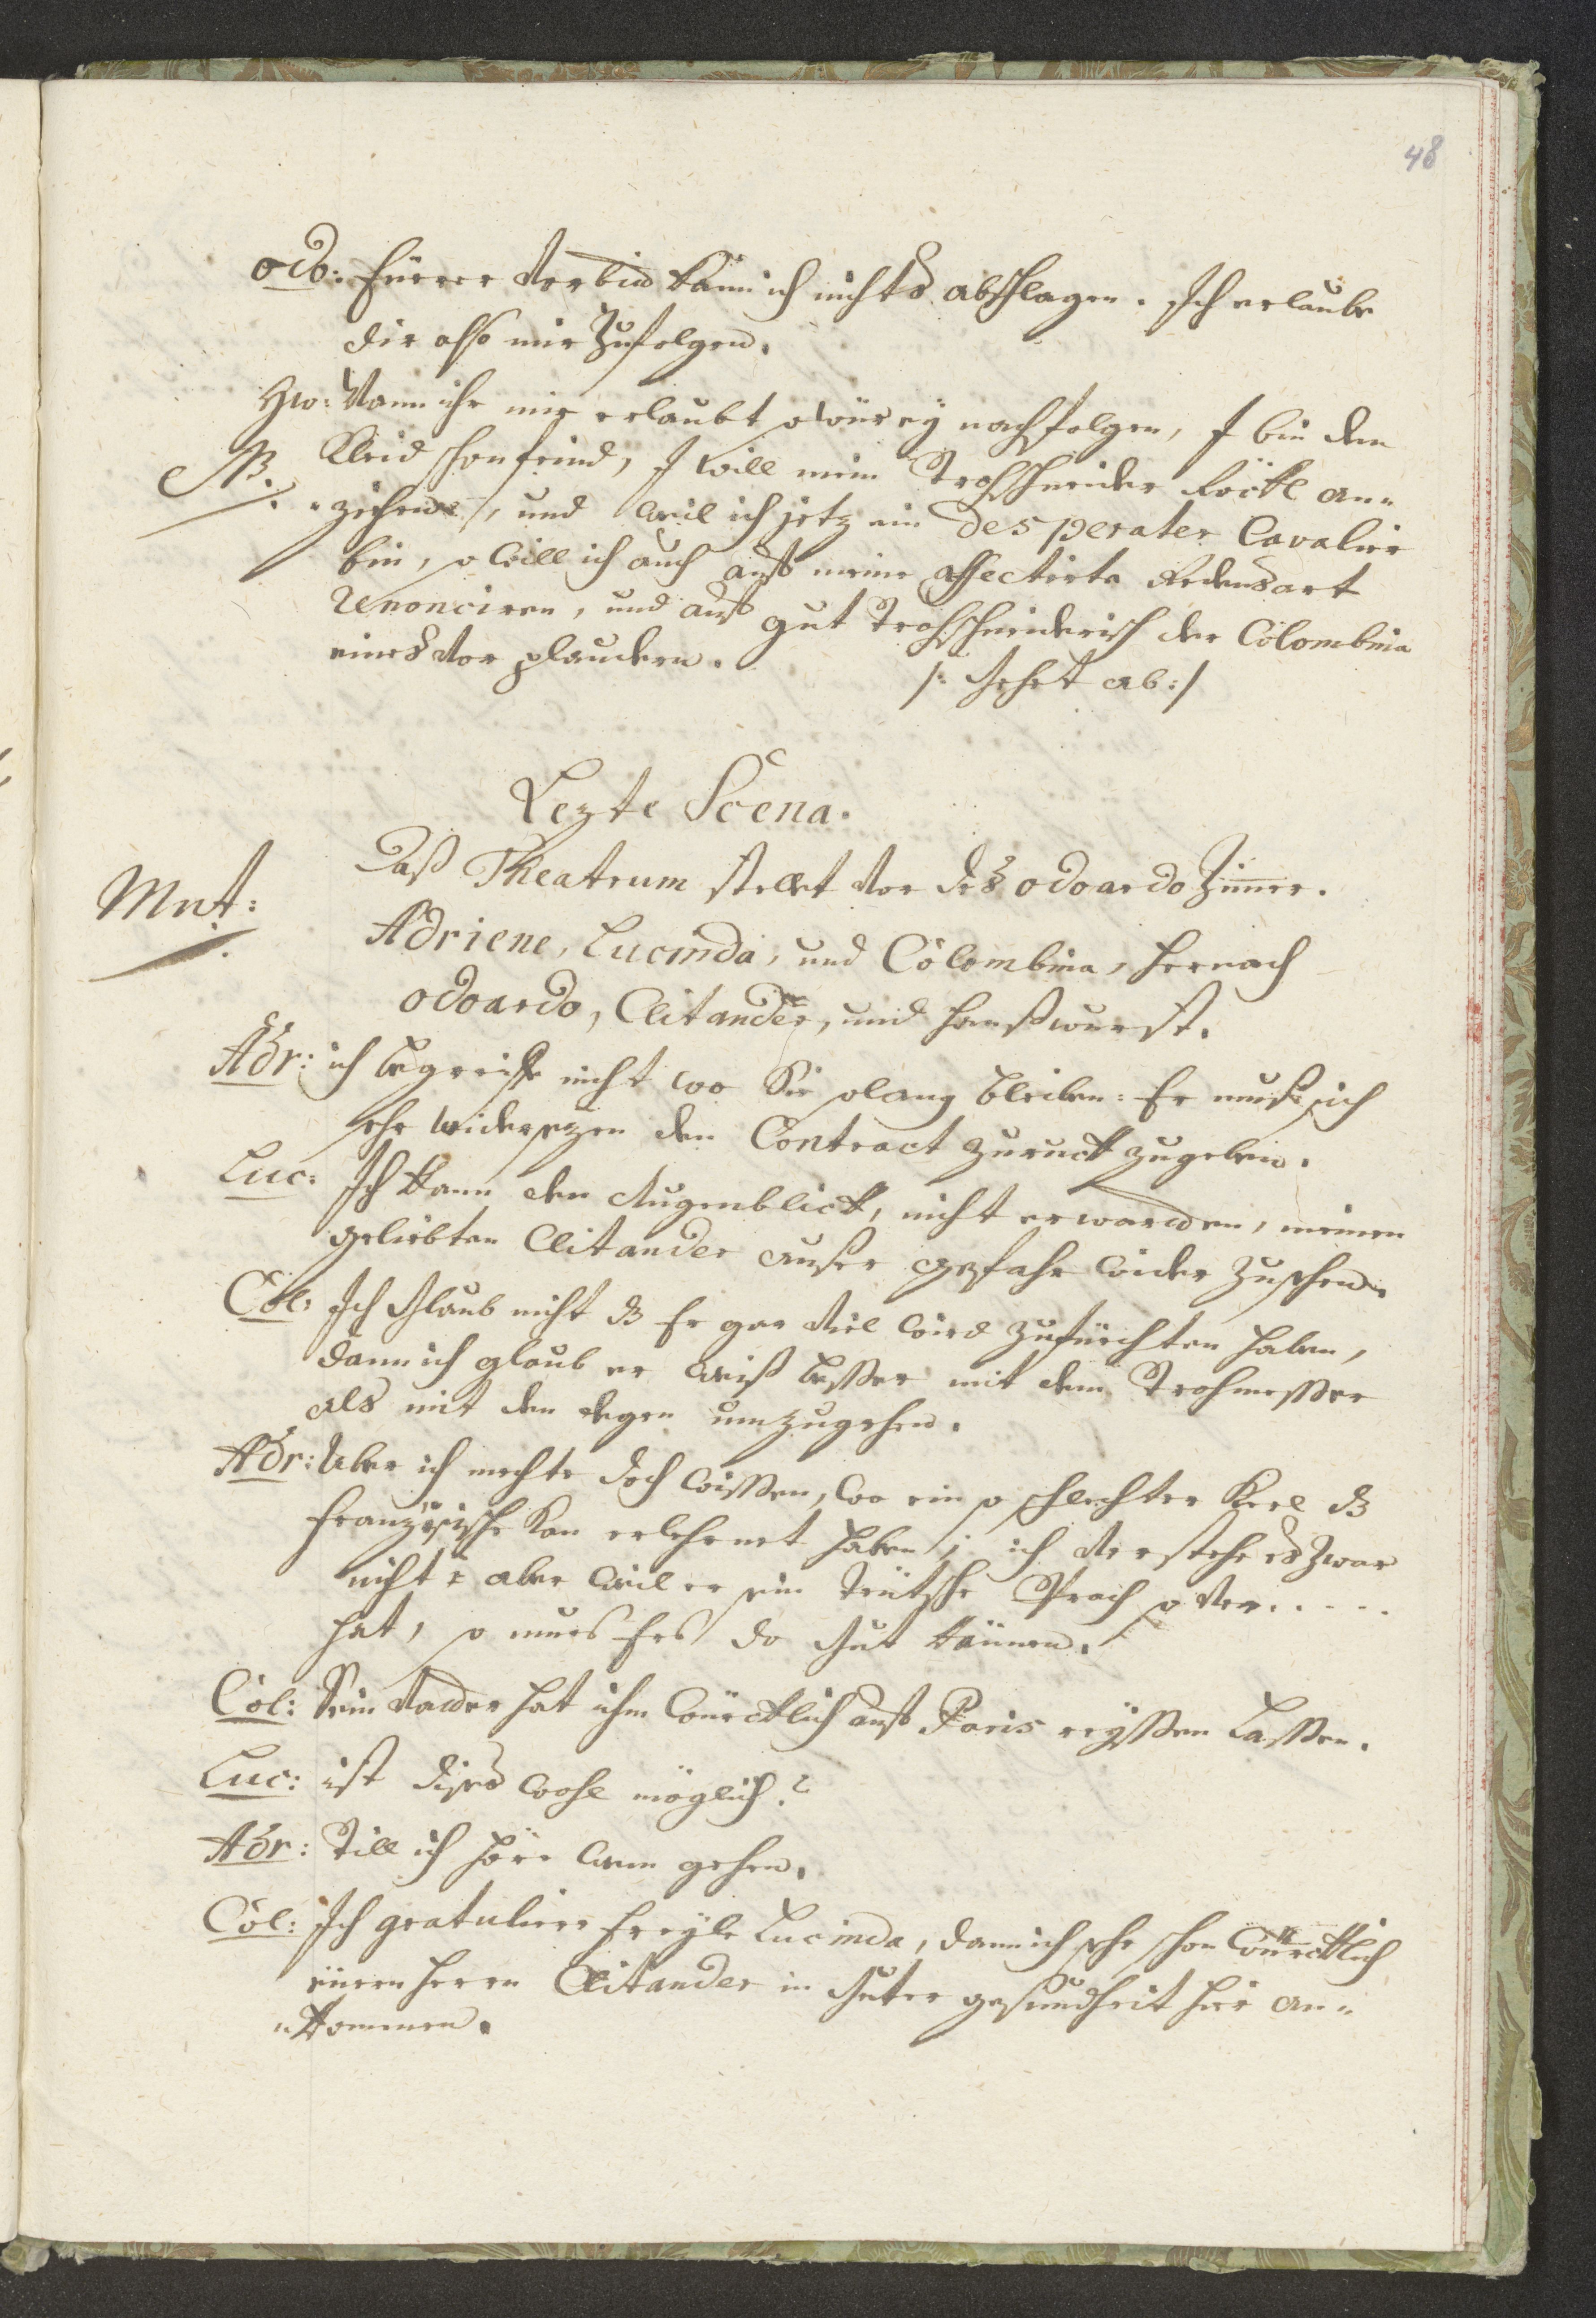 48
odo: Eurer Vorbitt kann ich nichts abschlagen. Ich erlaube
dir also mir Zufolgen.
Hw: Wann ihr mir erlaubt so würdi nachfolgen, I bin dem
NB. Kleid schon feind, I will mein Strohschneider Röckl an„
„ziehen, und weil ich jetz ein desperater Cavalier
bin, so will ich auch auf meine affectirte Redensart
Renonciren, und auf gut Strohschneiderisch der Colombina
eines vor plaudern. /: Gehet ab :/
Lezte Scena.
Mut: Daß Theatrum stellet vor deß odoardo Zimmer.
Adriene, Lucinda, und Colombina, hernach
odoardo, Clitander, und Hanßwurst.
Adr: ich begreiffe nicht wo Sie solang bleiben: Er muß sich
sehr widersezen den Contract zuruck zugeben.
Luc: Ich kann den Augenblick, nicht erwarden, meinen
geliebten Clitander außer gefahr wider zusehen.
Col: Ich Glaub nicht dß Er gar viel wird zufürchten haben,
dann ich glaub er weiß besser mit dem Strohmesser
als mit den degen umzugehen.
Adr: Aber ich mechte doch wissen, wo ein so schlechter Kerl dß
Französische kan erlehrnet haben; ich verstehe es zwar
nicht: aber weil er sein teütsche Sprach so ver.....
hat, so mues Ers do Gut können.
Col: Sein Vatder hat ihm würcklich auf Paris reyssen Lassen.
Luc: ist dises wohl möglich?
Adr: Still ich höre wem gehen.
Col: Ich gratuliere Freyle Lucinda, dann ich sehe schon würcklich
eüren Herrn Clitander in Guter gesundheit hier an„
„kommen.